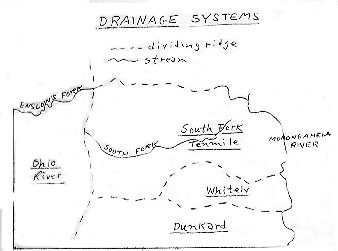 DRAINAGE SYSTEMS
dividing ridge
stream
ENSLOWS FORK
South Fork
Tenmile
SOUTH FORK
MONONGAHELA
RIVER
Ohio
River
Whitely
Dunkard